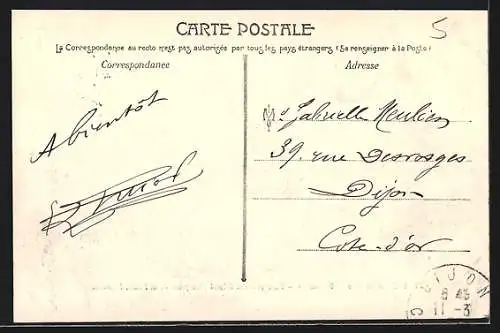 CARTE POSTALE
La Correspondance au recto n'est pas autorisée par tous les pays étrangers (Se renseigner à la Poste)
Correspondance
Adresse
5
A bientôt
Gabrielle
39, rue Desvosges
Dijon
Côte-d'or
DIJON